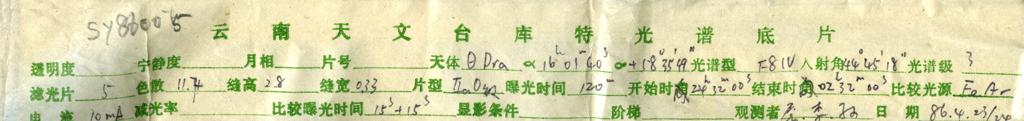 SY86005
云南天文台库特光谱底片
透明度 宁静度 月相 片号 天体 θ Dra α 16h 01m 40s δ +58°35′49″ 光谱型 F8IV 入射角 44°45′18″ 光谱级 3
滤光片 5 色散 11.74 缝高 2.8 缝宽 0.33 片型 IIaO 曝光时间 120m 开始时角 24h32m00s 结束时角 02h32m00s 比较光源 FeAr
电流 10mA 减光率 比较曝光时间 15s+15s 显影条件 阶梯 观测者 李 日期 86.4.23/24